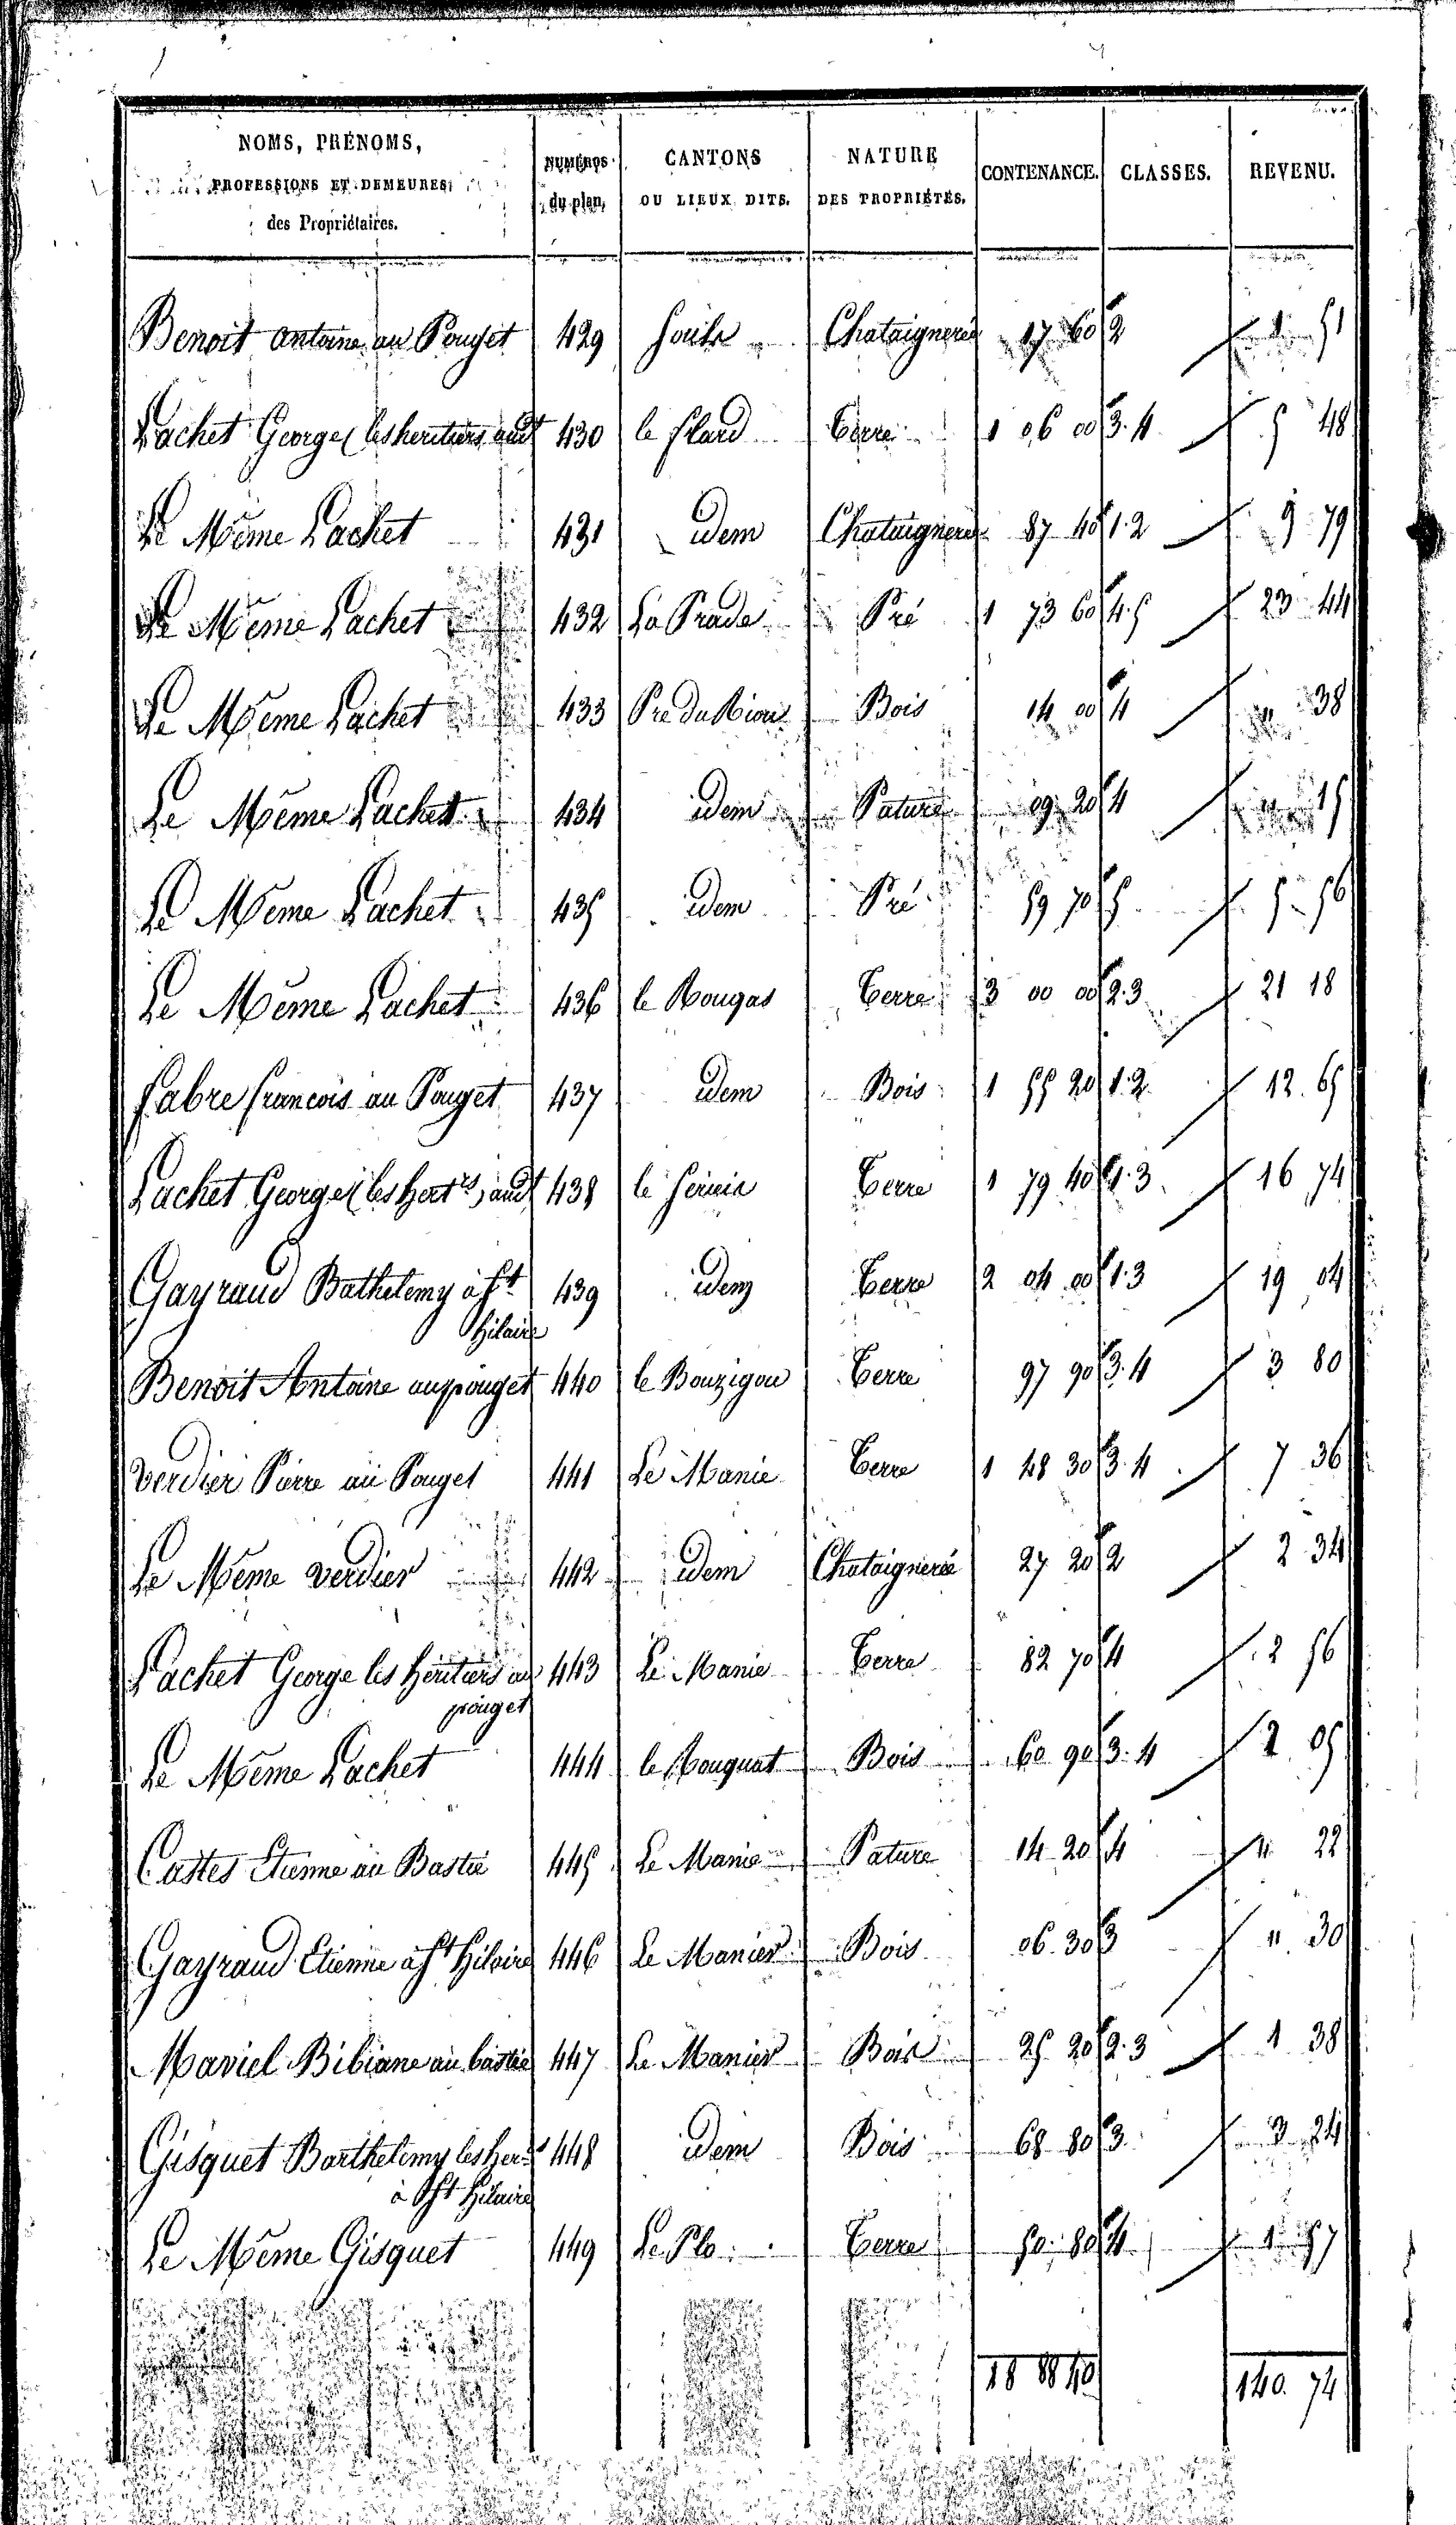 NOMS, PRÉNOMS, PROFESSIONS ET DEMEURES des Propriétaires. NUMÉROS du plan. CANTONS OU LIEUX DITS. NATURE DES PROPRIÉTÉS. CONTENANCE. CLASSES. REVENU.
Benoit antoine au Pouget 429 Chataignerée 17 60 2 1 51
Lachet George (les heritiers audt 430 Terre 1 06 00 3.4 5 48
Le Même Lachet 431 idem Chataignerée 87 40 1.2 9 79
Le Même Lachet 432 La Prade Pré 1 73 60 4.5 23 44
Le Même Lachet 433 Pre du Riou Bois 14 00 4 " 38
Le Même Lachet 434 idem Pature 09 20 4 " 15
Le Même Lachet 435 idem Pré 59 70 5 5 56
Le Même Lachet 436 le Rougas Terre 3 00 00 2.3 21 18
fabre francois au Pouget 437 idem Bois 1 55 20 1.2 12 65
Lachet George (les hertrs) audt 438 le Terre 1 79 40 1.3 16 74
Gayraud Bathelemy à St 439 idem Terre 2 04 00 1.3 19 04
hilaire
Benoit Antoine au pouget 440 le Bouzigou Terre 97 90 3.4 3 80
Verdier Pierre au Pouget 441 Le Manie Terre 1 48 30 3.4 7 36
Le Même verdier 442 idem Chataignerée 27 20 2 2 34
Lachet George les héritiers au 443 Le Manie Terre 82 70 4 2 56
pouget
Le Même Lachet 444 le Bois 60 90 3.4 2 05
Castes Etienne au Bastié 445 Le Manie Pature 14 20 4 " 22
Gayraud Etienne à St hilaire 446 Le Manier Bois 06 30 3 " 30
Maviel Bibiane au bastié 447 Le Manier Bois 25 20 2.3 1 38
Gisquet Barthelemy les hers 448 idem Bois 68 80 3 3 24
à St hilaire
Le Même Gisquet 449 Le Plo Terre 50 80 4 1 57
18 88 40 140 74